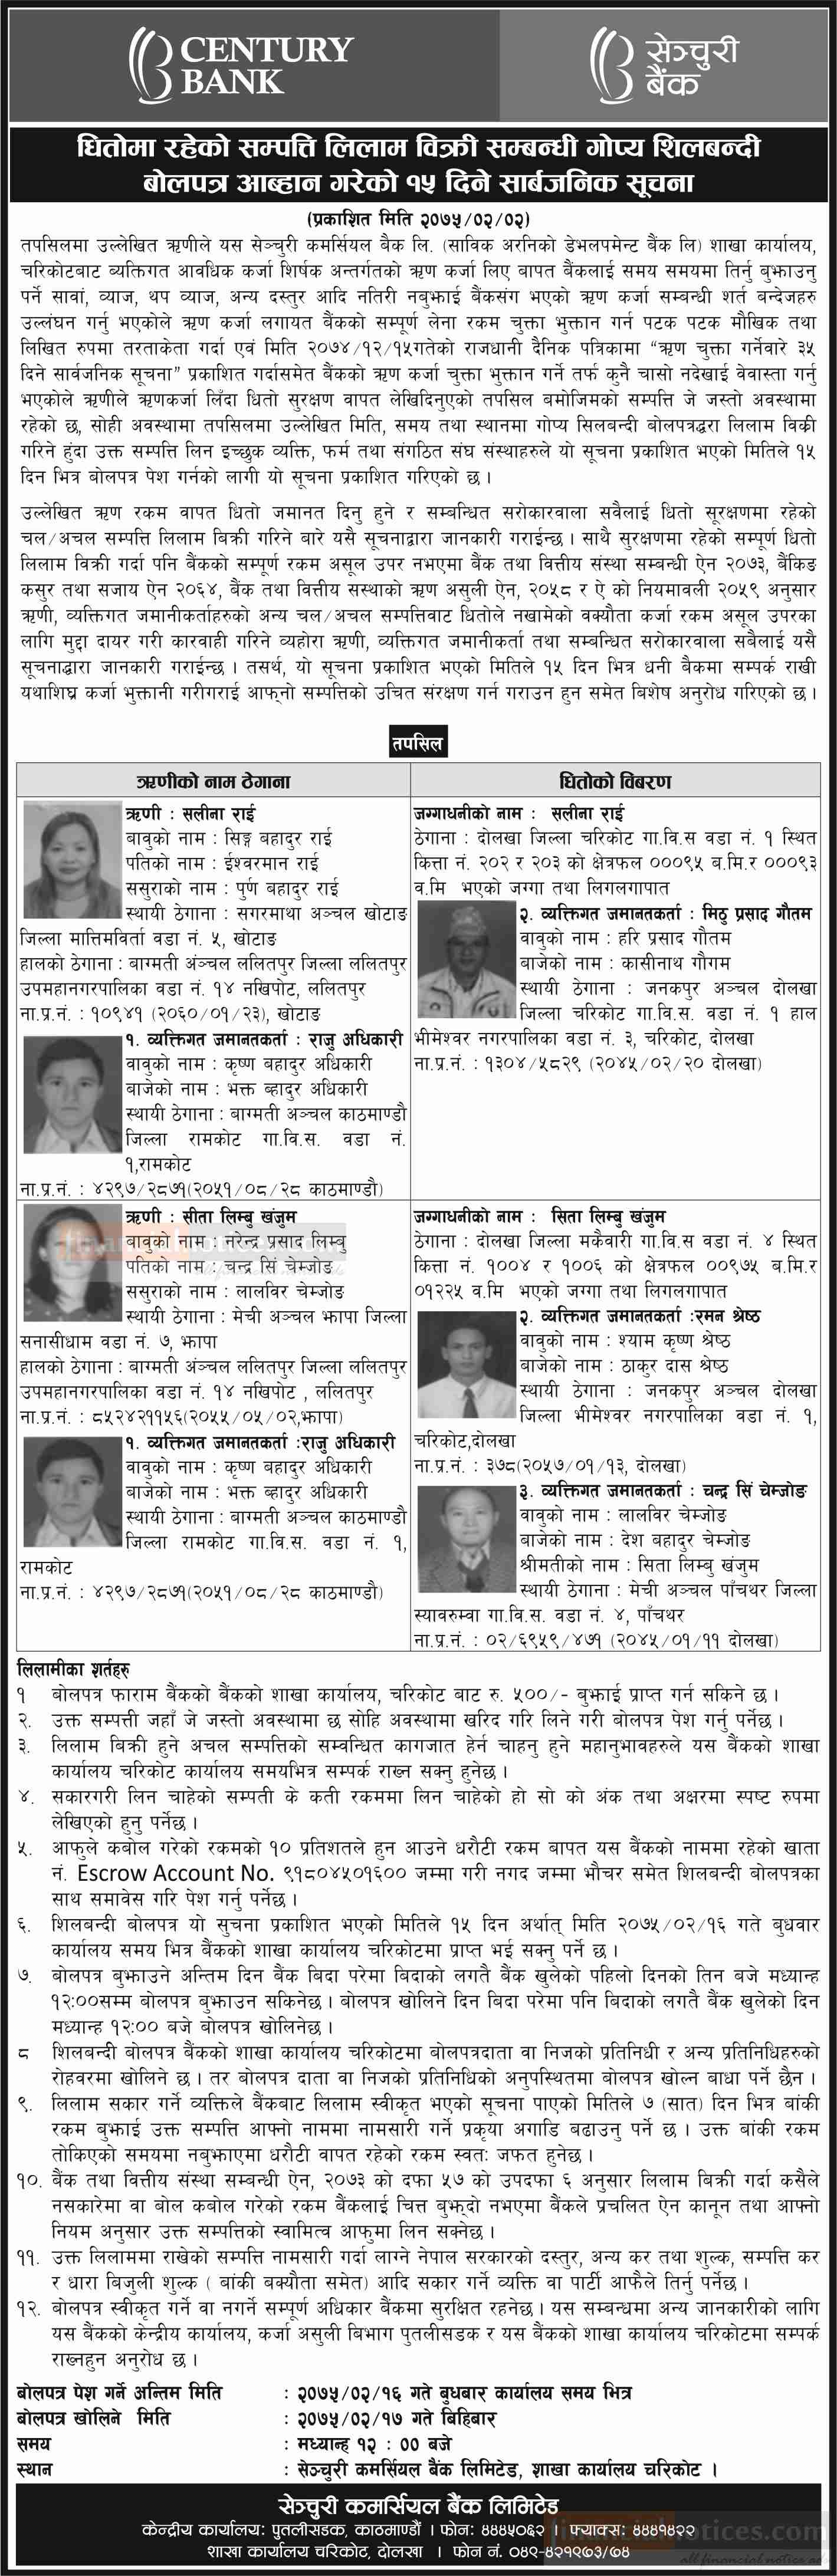 CENTURY
BANK
सेञ्चुरी
बैंक
धितोमा रहेको सम्पत्ति लिलाम विक्री सम्बन्धी गोप्य शिलबन्दी
बोलपत्र आब्हान गरेको १५ दिने सार्बजनिक सूचना
(प्रकाशित मिति २०७५/०२/०२)
तपसिलमा उल्लेखित ऋणीले यस सेञ्चुरी कमर्सियल बैक लि. (साविक अरनिको डेभलपमेन्ट बैंक लि) शाखा कार्यालय,
चरिकोटबाट व्यक्तिगत आवधिक कर्जा शिर्षक अन्तर्गतको ऋण कर्जा लिए बापत बैंकलाई समय समयमा तिर्नु बुझाउनु
पर्ने सावां, व्याज, थप व्याज, अन्य दस्तुर आदि नतिरी नबुझाई बैंकसंग भएको ऋण कर्जा सम्बन्धी शर्त बन्देजहरु
उल्लंघन गर्नु भएकोले ऋण कर्जा लगायत बैंकको सम्पूर्ण लेना रकम चुक्ता भुक्तान गर्न पटक पटक मौखिक तथा
लिखित रुपमा तरताकेता गर्दा एवं मिति २०७४/१२/१५गतेको राजधानी दैनिक पत्रिकामा “ऋण चुक्ता गर्नेवारे ३५
दिने सार्वजनिक सूचना” प्रकाशित गर्दासमेत बैंकको ऋण कर्जा चुक्ता भुक्तान गर्ने तर्फ कुनै चासो नदेखाई वेवास्ता गर्नु
भएकोले ऋणीले ऋणकर्जा लिँदा धितो सुरक्षण वापत लेखिदिनुएको तपसिल बमोजिमको सम्पत्ति जे जस्तो अवस्थामा
रहेको छ, सोही अवस्थामा तपसिलमा उल्लेखित मिति, समय तथा स्थानमा गोप्य सिलबन्दी बोलपत्रद्धरा लिलाम विक्री
गरिने हुंदा उक्त सम्पत्ति लिन इच्छुक व्यक्ति, फर्म तथा संगठित संघ संस्थाहरुले यो सूचना प्रकाशित भएको मितिले १५
दिन भित्र बोलपत्र पेश गर्नको लागी यो सूचना प्रकाशित गरिएको छ ।
उल्लेखित ऋण रकम वापत धितो जमानत दिनु हुने र सम्बन्धित सरोकारवाला सवैलाई धितो सूरक्षणमा रहेको
चल/अचल सम्पत्ति लिलाम बिक्री गरिने बारे यसै सूचनाद्वारा जानकारी गराईन्छ । साथै सुरक्षणमा रहेको सम्पूर्ण धितो
लिलाम विक्री गर्दा पनि बैंकको सम्पूर्ण रकम असूल उपर नभएमा बैंक तथा वित्तीय संस्था सम्बन्धी ऐन २०७३, बैंकिङ
कसुर तथा सजाय ऐन २०६४, बैंक तथा वित्तीय सस्थाको ऋण असुली ऐन, २०५८ र ऐ को नियमावली २०५९ अनुसार
ऋणी, व्यक्तिगत जमानीकर्ताहरुको अन्य चल/अचल सम्पत्तिवाट धितोले नखामेको वक्यौता कर्जा रकम असूल उपरका
लागि मुद्दा दायर गरी कारवाही गरिने व्यहोरा ऋणी, व्यक्तिगत जमानीकर्ता तथा सम्बन्धित सरोकारवाला सबैलाई यसै
सूचनाद्धारा जानकारी गराईन्छ । तसर्थ, यो सूचना प्रकाशित भएको मितिले १५ दिन भित्र धनी बैकमा सम्पर्क राखी
यथाशिघ्र कर्जा भुक्तानी गरीगराई आफ्नो सम्पत्तिको उचित संरक्षण गर्न गराउन हुन समेत बिशेष अनुरोध गरिएको छ ।
तपसिल
ऋणीको नाम ठेगाना
धितोको विबरण
ऋणी : सलीना राई
बावुको नाम : सिङ्ग बहादुर राई
पतिको नाम : ईश्वरमान राई
ससुराको नाम : पुर्ण बहादुर राई
स्थायी ठेगाना : सगरमाथा अञ्चल खोटाङ
जिल्ला मात्तिमविर्ता वडा नं. ५, खोटाङ
हालको ठेगाना : बाग्मती अंञ्चल ललितपुर जिल्ला ललितपुर
उपमहानगरपालिका वडा नं. १४ नखिपोट, ललितपुर
ना.प्र.नं. : १०९४१ (२०६०/०१/२३), खोटाङ
१. व्यक्तिगत जमानतकर्ता : राजु अधिकारी
वावुको नाम : कृष्ण बहादुर अधिकारी
बाजेको नाम : भक्त ब्हादुर अधिकारी
स्थायी ठेगाना : बाग्मती अञ्चल काठमाण्डौ
जिल्ला रामकोट गा.वि.स. वडा नं.
१,रामकोट
ना.प्र.नं. : ४२९७/२८७१(२०५१/०८/२८ काठमाण्डौ)
जग्गाधनीको नाम : सलीना राई
ठेगाना : दोलखा जिल्ला चरिकोट गा.वि.स वडा नं. १ स्थित
कित्ता नं. २०२ र २०३ को क्षेत्रफल ०००९५ ब.मि.र ०००९३
व.मि भएको जग्गा तथा लिगलगापात
२. व्यक्तिगत जमानतकर्ता : मिठु प्रसाद गौतम
वावुको नाम : हरि प्रसाद गौतम
बाजेको नाम : कासीनाथ गौगम
स्थायी ठेगाना : जनकपुर अञ्चल दोलखा
जिल्ला चरिकोट गा.वि.स. वडा नं. १ हाल
भीमेश्वर नगरपालिका वडा नं. ३, चरिकोट, दोलखा
ना.प्र.नं. : १३०४/५८२९ (२०४५/०२/२० दोलखा)
ऋणी : सीता लिम्बु खंजुम
बावुको नाम : नरेन्द्र प्रसाद लिम्बु
पतिको नाम : चन्द्र सिं चेम्जोङ
ससुराको नाम : लालविर चेम्जोङ
स्थायी ठेगाना : मेची अञ्चल झापा जिल्ला
सनासीधाम वडा नं. ७, झापा
हालको ठेगाना : बाग्मती अंञ्चल ललितपुर जिल्ला ललितपुर
उपमहानगरपालिका वडा नं. १४ नखिपोट , ललितपुर
ना.प्र.नं. : ८५२४२११५६(२०५५/०५/०२,झापा)
१. व्यक्तिगत जमानतकर्ता :राजु अधिकारी
वावुको नाम : कृष्ण बहादुर अधिकारी
बाजेको नाम : भक्त ब्हादुर अधिकारी
स्थायी ठेगाना : बाग्मती अञ्चल काठमाण्डौ
जिल्ला रामकोट गा.वि.स. वडा नं. १,
रामकोट
ना.प्र.नं. : ४२९७/२८७१(२०५१/०८/२८ काठमाण्डौ)
जग्गाधनीको नाम : सिता लिम्बु खंजुम
ठेगाना : दोलखा जिल्ला मकैवारी गा.वि.स वडा नं. ४ स्थित
कित्ता नं. १००४ र १००६ को क्षेत्रफल ००९७५ ब.मि.र
०१२२५ व.मि भएको जग्गा तथा लिगलगापात
२. व्यक्तिगत जमानतकर्ता :रमन श्रेष्ठ
वावुको नाम : श्याम कृष्ण श्रेष्ठ
बाजेको नाम : ठाकुर दास श्रेष्ठ
स्थायी ठेगाना : जनकपुर अञ्चल दोलखा
जिल्ला भीमेश्वर नगरपालिका वडा नं. १,
चरिकोट,दोलखा
ना.प्र.नं. : ३७८(२०५७/०१/१३, दोलखा)
३. व्यक्तिगत जमानतकर्ता : चन्द्र सिं चेम्जोङ
वावुको नाम : लालविर चेम्जोङ
बाजेको नाम : देश बहादुर चेम्जोङ
श्रीमतीको नाम : सिता लिम्बु खंजुम
स्थायी ठेगाना : मेची अञ्चल पाँचथर जिल्ला
स्यावरुम्वा गा.वि.स. वडा नं. ४, पाँचथर
ना.प्र.नं. : ०२/६९५९/४७१ (२०४५/०१/११ दोलखा)
लिलामीका शर्तहरु
१ बोलपत्र फाराम बैंकको बैंकको शाखा कार्यालय, चरिकोट बाट रु. ५००/- बुझाई प्राप्त गर्न सकिने छ ।
२. उक्त सम्पत्ती जहाँ जे जस्तो अवस्थामा छ सोहि अवस्थामा खरिद गरि लिने गरी बोलपत्र पेश गर्नु पर्नेछ ।
३. लिलाम बिक्री हुने अचल सम्पत्तिको सम्वन्धित कागजात हेर्न चाहनु हुने महानुभावहरुले यस बैंकको शाखा
कार्यालय चरिकोट कार्यालय समयभित्र सम्पर्क राख्न सक्नु हुनेछ ।
४. सकारगरी लिन चाहेको सम्पती के कती रकममा लिन चाहेको हो सो को अंक तथा अक्षरमा स्पष्ट रुपमा
लेखिएको हुनु पर्नेछ ।
५. आफुले कबोल गरेको रकमको १० प्रतिशतले हुन आउने धरौटी रकम बापत यस बैंकको नाममा रहेको खाता
नं. Escrow Account No. ९१८०४५०१६०० जम्मा गरी नगद जम्मा भौचर समेत शिलबन्दी बोलपत्रका
साथ समावेस गरि पेश गर्नु पर्नेछ ।
६. शिलबन्दी बोलपत्र यो सुचना प्रकाशित भएको मितिले १५ दिन अर्थात् मिति २०७५/०२/१६ गते बुधवार
कार्यालय समय भित्र बैंकको शाखा कार्यालय चरिकोटमा प्राप्त भई सक्नु पर्ने छ ।
७. बोलपत्र बुझाउने अन्तिम दिन बैंक बिदा परेमा बिदाको लगतै बैंक खुलेको पहिलो दिनको तिन बजे मध्यान्ह
१२:००सम्म बोलपत्र बुझाउन सकिनेछ । बोलपत्र खोलिने दिन बिदा परेमा पनि बिदाको लगतै बैंक खुलेको दिन
मध्यान्ह १२:०० बजे बोलपत्र खोलिनेछ ।
८ शिलबन्दी बोलपत्र बैंकको शाखा कार्यालय चरिकोटमा बोलपत्रदाता वा निजको प्रतिनिधी र अन्य प्रतिनिधिहरुको
रोहवरमा खोलिने छ । तर बोलपत्र दाता वा निजको प्रतिनिधिको अनुपस्थितमा बोलपत्र खोल्न बाधा पर्ने छैन ।
९. लिलाम सकार गर्ने व्यक्तिले बैंकबाट लिलाम स्वीकृत भएको सूचना पाएको मितिले ७ (सात) दिन भित्र बांकी
रकम बुझाई उक्त सम्पत्ति आफ्नो नाममा नामसारी गर्ने प्रकृया अगाडि बढाउनु पर्ने छ । उक्त बांकी रकम
तोकिएको समयमा नबुझाएमा धरौटी वापत रहेको रकम स्वतः जफत हुनेछ ।
१०. बैंक तथा वित्तीय संस्था सम्बन्धी ऐन, २०७३ को दफा ५७ को उपदफा ६ अनुसार लिलाम बिक्री गर्दा कसैले
नसकारेमा वा बोल कबोल गरेको रकम बैंकलाई चित्त बुझ्दो नभएमा बैंकले प्रचलित ऐन कानून तथा आफ्नो
नियम अनुसार उक्त सम्पत्तिको स्वामित्व आफुमा लिन सक्नेछ ।
११. उक्त लिलाममा राखेको सम्पत्ति नामसारी गर्दा लाग्ने नेपाल सरकारको दस्तुर, अन्य कर तथा शुल्क, सम्पत्ति कर
र धारा बिजुली शुल्क ( बांकी बक्यौता समेत) आदि सकार गर्ने व्यक्ति वा पार्टी आफैले तिर्नु पर्नेछ ।
१२. बोलपत्र स्वीकृत गर्ने वा नगर्ने सम्पूर्ण अधिकार बैंकमा सुरक्षित रहनेछ । यस सम्बन्धमा अन्य जानकारीको लागि
यस बैंकको केन्द्रीय कार्यालय, कर्जा असुली बिभाग पुतलीसडक र यस बैंकको शाखा कार्यालय चरिकोटमा सम्पर्क
राख्नहुन अनुरोध छ ।
बोलपत्र पेश गर्ने अन्तिम मिति : २०७५/०२/१६ गते बुधबार कार्यालय समय भित्र
बोलपत्र खोलिने मिति : २०७५/०२/१७ गते बिहिबार
समय : मध्यान्ह १२ : ०० बजे
स्थान : सेञ्चुरी कमर्सियल बैंक लिमिटेड, शाखा कार्यालय चरिकोट ।
सेञ्चुरी कमर्सियल बैंक लिमिटेड
केन्द्रीय कार्यालय: पुतलीसडक, काठमाण्डौं । फोन: ४४४५०६२ । फ्याक्स: ४४४१४२२
शाखा कार्यालय चरिकोट, दोलखा । फोन नं. ०४९-४२१९७३/७४
financialnotices.com